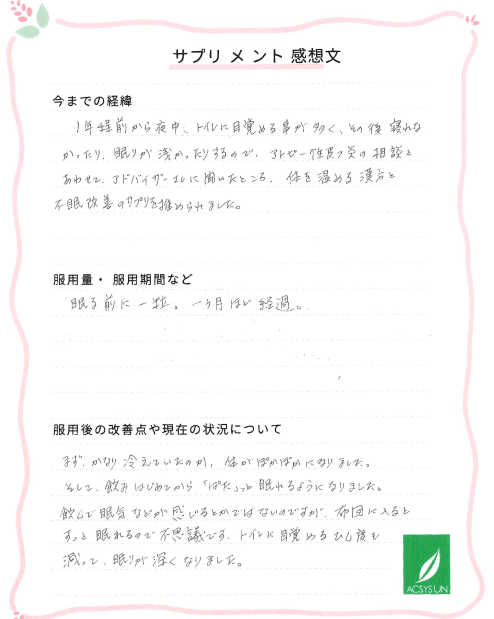 サプリメント 感想文
今までの経緯
1年程前から夜中、トイレに目覚める事が多く、その後 寝れな
かったり、眠りが浅かったりするので、アトピー性皮フ炎の相談と
あわせて、アドバイザーさんに聞いたところ、体を温める漢方と
不眠改善のサプリを推められました。
服用量・服用期間など
眠る前に一粒。一ヶ月ほど経過。
服用後の改善点や現在の状況について
まず、かなり冷えていたのが、体がぽかぽかになりました。
そして、飲みはじめてから「ぱたっ」と眠れるようになりました。
飲んで眠気などが感じるとかではないのですが、布団に入ると
すっと眠れるので不思議です。トイレに目覚めるひん度も
減って、眠りが深くなりました。
ACSYSUN